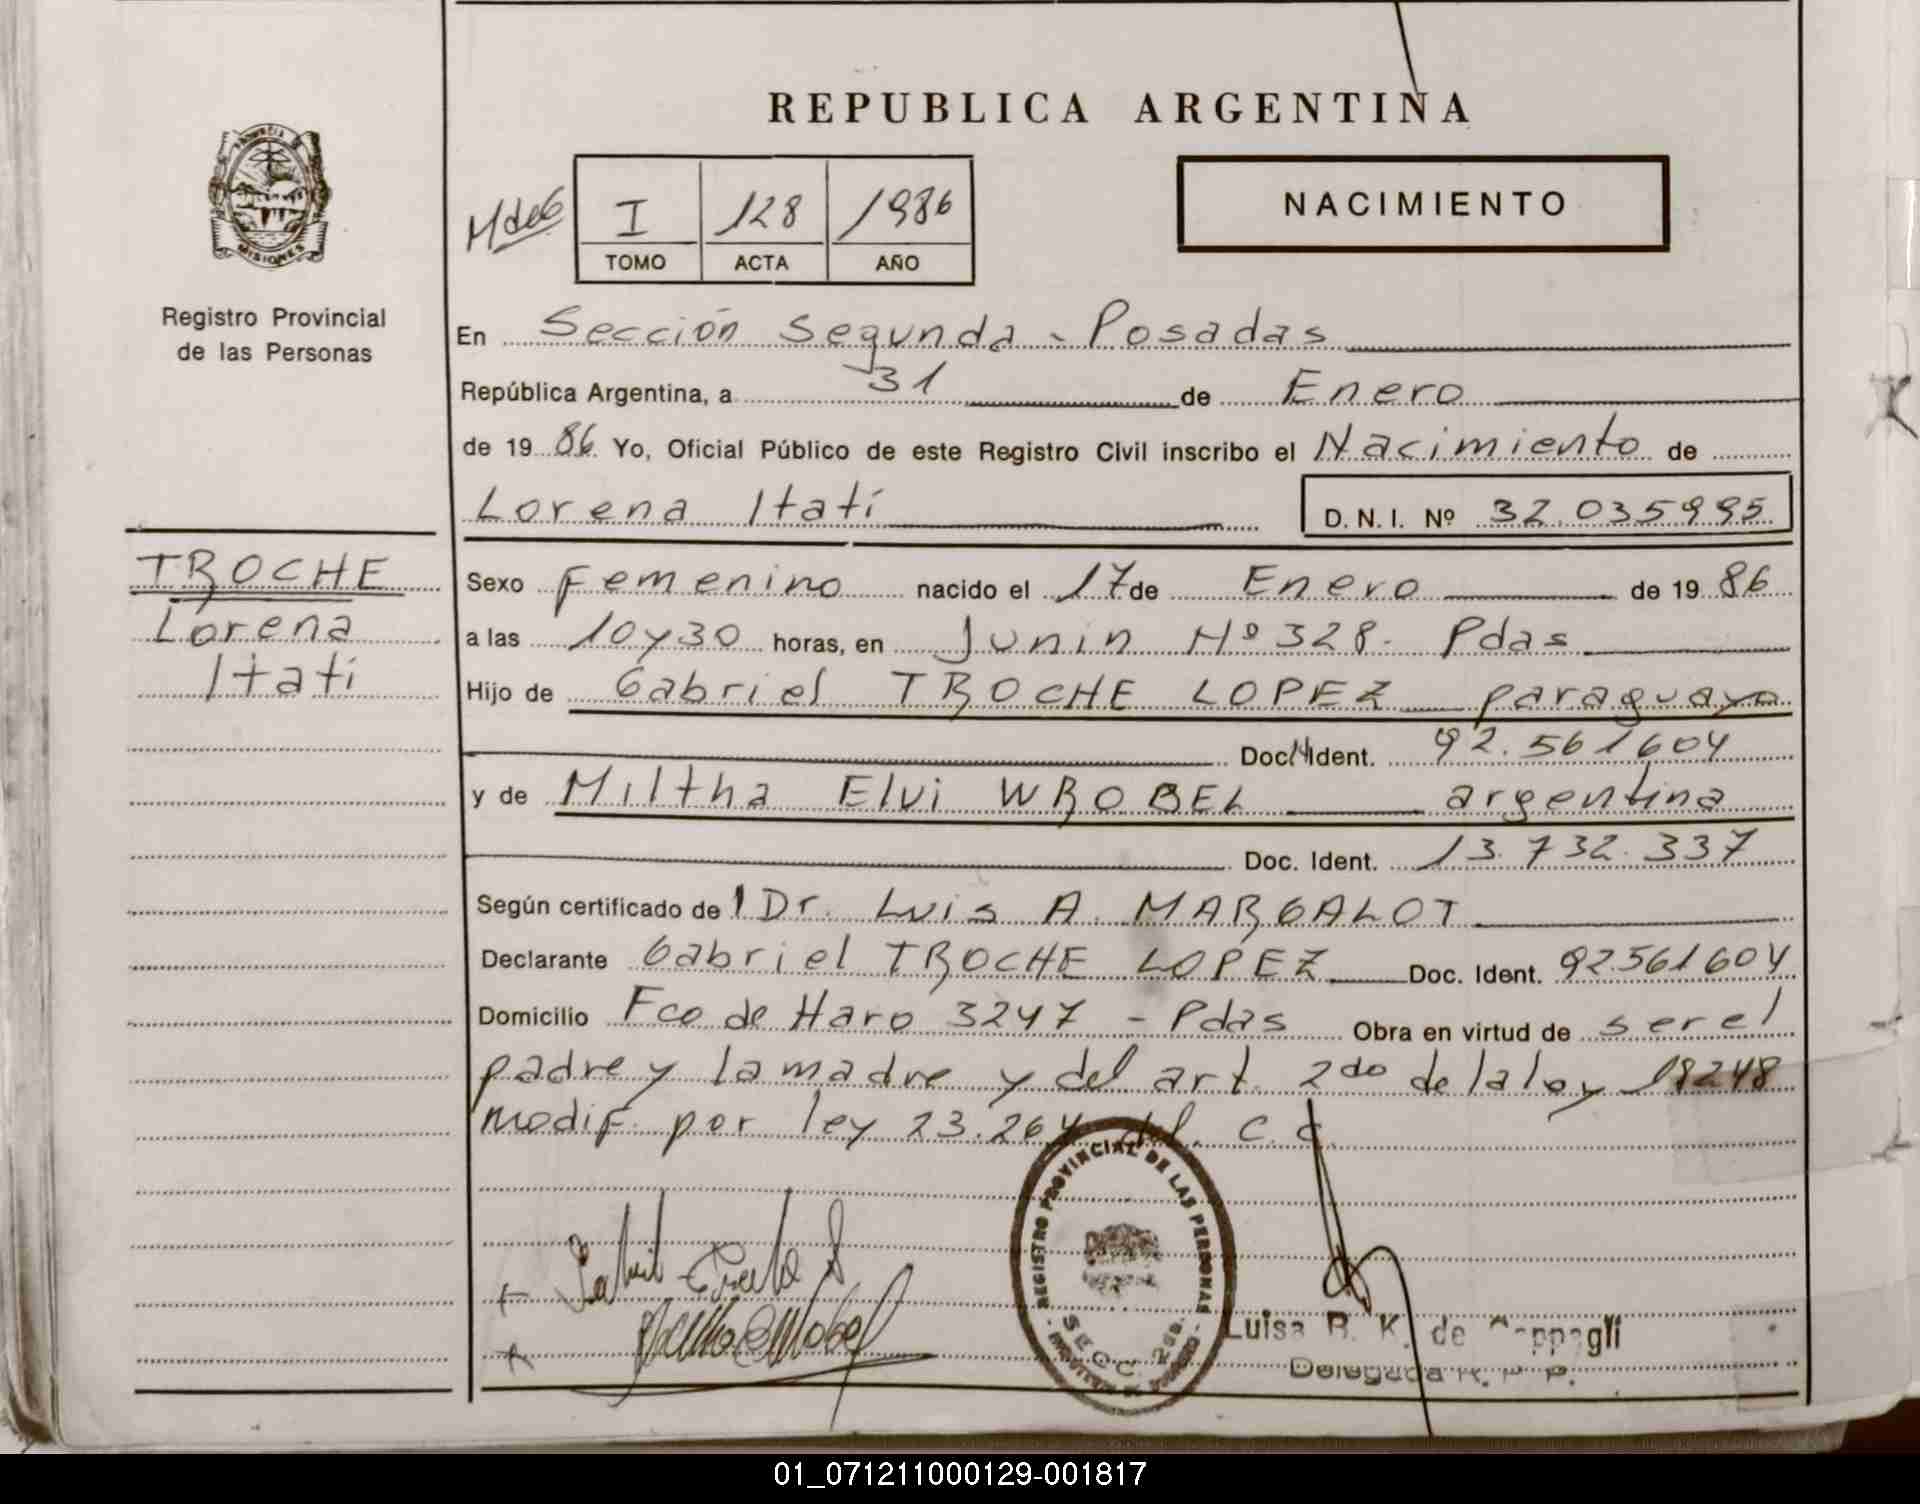 REPUBLICA ARGENTINA
PROVINCIA DE
MISIONES
Registro Provincial
de las Personas
I 128 1986
TOMO ACTA AÑO
NACIMIENTO
En Sección Segunda - Posadas
República Argentina, a 31 de Enero
de 1986 Yo, Oficial Público de este Registro Civil inscribo el Nacimiento de
Lorena Itatí
D. N. I. Nº 32.035995
TROCHE
Lorena
Itatí
Sexo Femenino nacido el 17 de Enero de 1986
a las 10 y 30 horas, en Junin Nº 328- Pdas
Hijo de Gabriel TROCHE LOPEZ paraguayo
Doc. Ident. 92.561604
y de Miltha Elvi WROBEL argentina
Doc. Ident. 13.732.337
Según certificado de l Dr. Luis A. MARGALOT
Declarante Gabriel TROCHE LOPEZ Doc. Ident. 92.561604
Domicilio Fco de Haro 3247 - Pdas Obra en virtud de ser el
padre y la madre y del art. 2do de la ley 18248
modif. por ley 23.264 del C. C.
REGISTRO PROVINCIAL DE LAS PERSONAS
SECC. 2da.
Luisa B. K. de
Delegada R. P. P.
01_071211000129-001817